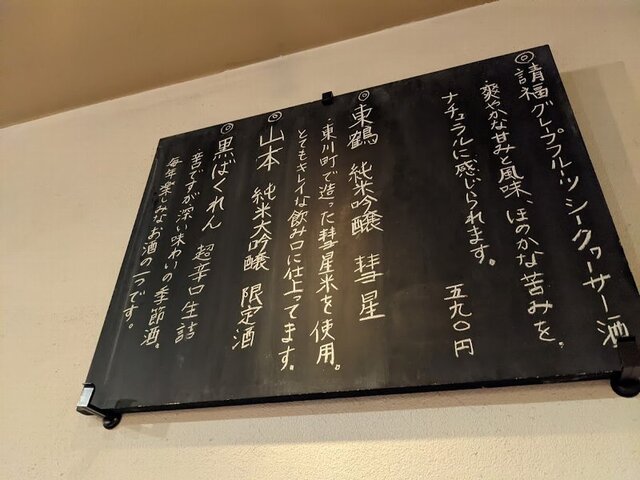 ◎請福グレープフルーツシークヮーサー酒
・爽やかな甘みと風味、ほのかな苦みを、
ナチュラルに感じられます。 五九〇円
◎東鶴 純米吟醸 彗星
・東川町で造った彗星米を使用。
とてもキレイな飲み口に仕上ってます。
◎山本 純米大吟醸 限定酒
◎黒ばくれん 超辛口生詰
・辛ですが深い味わいの季節酒。
毎年楽しみなお酒の一つです。